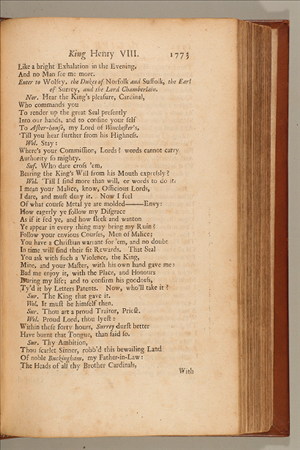 King Henry VIII. 1773
Like a bright Exhalation in the Evening,
And no Man see me more.
Enter to Wolsey, the Dukes of Norfolk and Suffolk, the Earl
of Surrey, and the Lord Chamberlain.
Nor. Hear the King's pleasure, Cardinal,
Who commands you
To render up the great Seal presently
Into our hands, and to confine your self
To Asher-house, my Lord of Winchester's,
'Till you hear further from his Highness.
Wol. Stay:
Where's your Commission, Lords? words cannot carry
Authority so mighty.
Suf. Who dare cross 'em,
Bearing the King's Will from his Mouth expresly?
Wol. Till I find more than will, or words to do it,
I mean your Malice, know, Officious Lords,
I dare, and must deny it. Now I feel
Of what course Metal ye are molded——Envy:
How eagerly ye follow my Disgrace
As if it fed ye, and how sleek and wanton
Ye appear in every thing may bring my Ruin!
Follow your envious Courses, Men of Malice;
You have a Christian warrant for 'em, and no doubt
In time will find their fit Rewards. That Seal
You ask with such a Violence, the King,
Mine, and your Master, with his own hand gave me:
Bad me enjoy it, with the Place, and Honours
During my life; and to confirm his goodness,
Ty'd it by Letters Patents. Now, who'll take it?
Sur. The King that gave it.
Wol. It must be himself then.
Sur. Thou art a proud Traitor, Priest.
Wol. Proud Lord, thou lyest:
Within these forty hours, Surrey durst better
Have burnt that Tongue, than said so.
Sur. Thy Ambition,
Thou scarlet Sinner, robb'd this bewailing Land
Of noble Buckingham, my Father-in-Law:
The Heads of all thy Brother Cardinals,
With